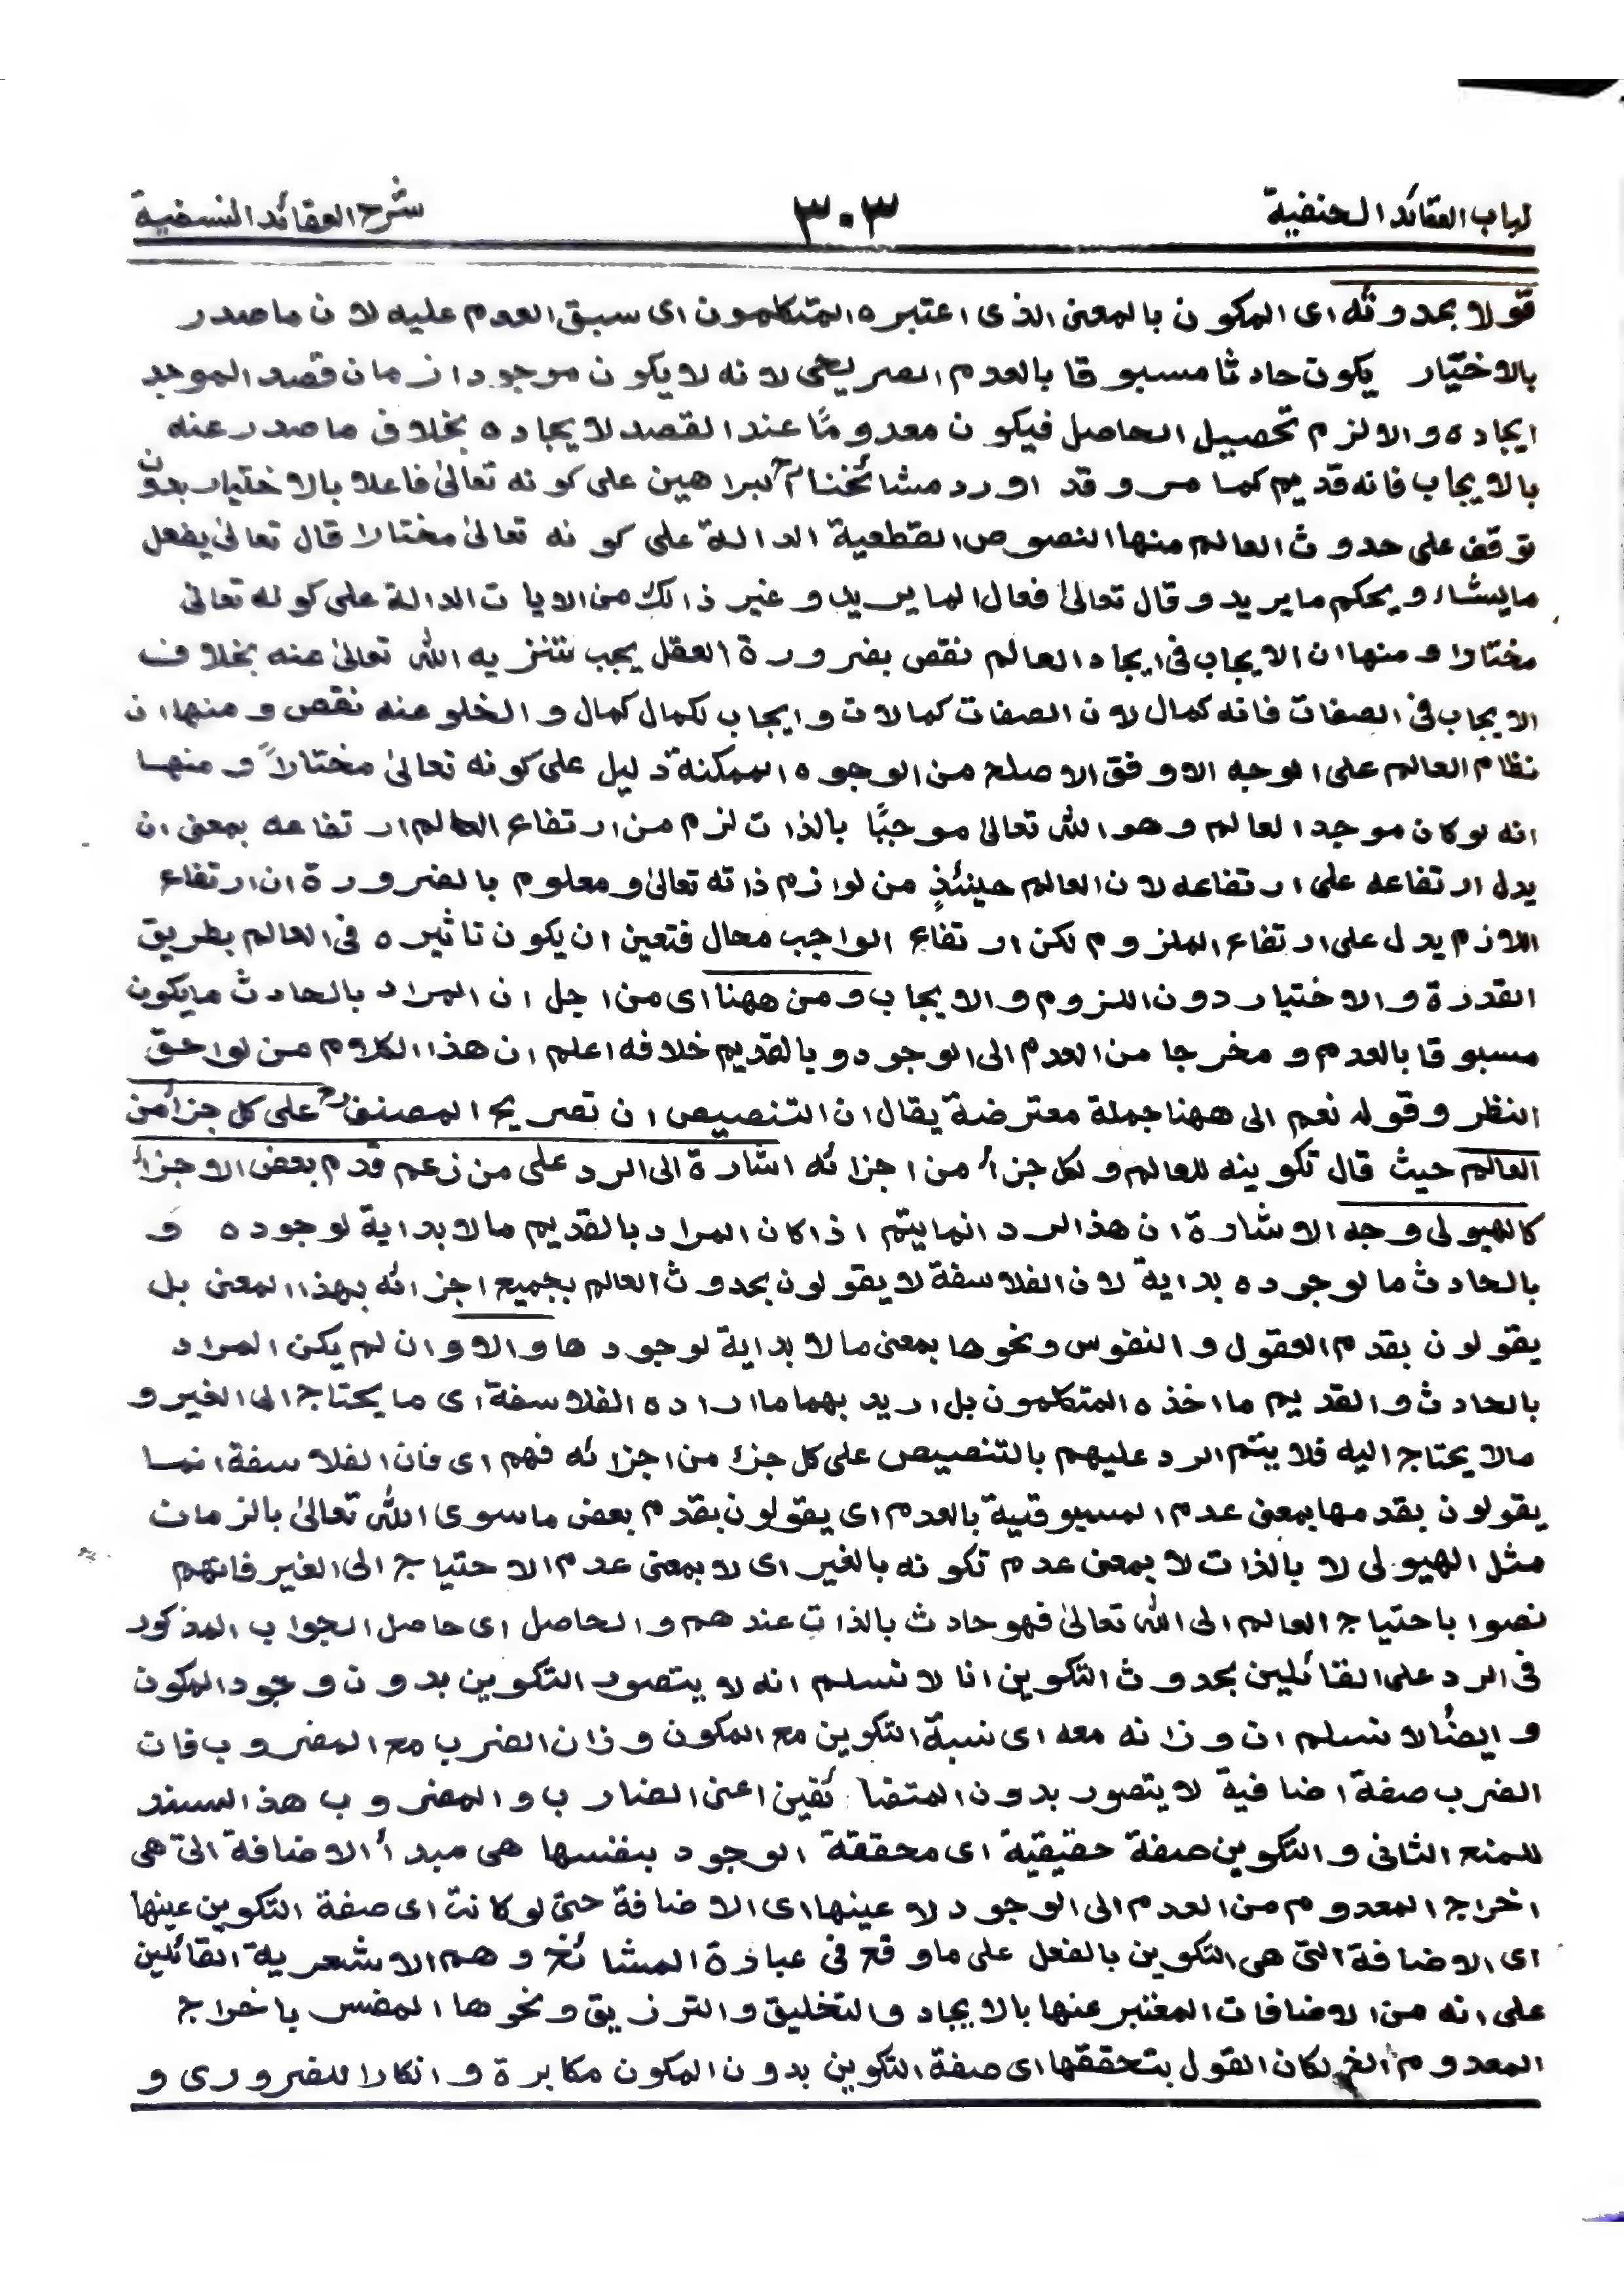 لباب العقائد الحنفية ٣٠٣ شرح العقائد النسفية
قولا بحدوثه اى المكون بالمعنى الذى اعتبره المتكلمون اى سبق العدم عليه لان ما صدر
بالاختيار يكون حادثا مسبوقا بالعدم الصريحى لانه لا يكون موجودا زمان قصد الموجد
ايجاده والا لزم تحصيل الحاصل فيكون معدومًا عند القصد لايجاده بخلاف ما صدر عنه
بالايجاب فانه قديم كما مر وقد اورد مشائخنا لبراهين على كونه تعالىٰ فاعلا بالاختيار بدون
توقف على حدوث العالم منها النصوص القطعية الدالة على كونه تعالىٰ مختارا قال تعالىٰ يفعل
ما يشاء ويحكم ما يريد وقال تعالىٰ فعال لما يريد و غير ذالك من الايات الدالة على كونه تعالىٰ
مختارا و منها ان الايجاب فى ايجاد العالم نقص بضرورة العقل يجب تنزيه اللّٰه تعالىٰ عنه بخلاف
الايجاب فى الصفات فانه كمال لان الصفات كمالات و ايجاب لكمال كمال و الخلو عنه نقص و منها ان
نظام العالم على الوجه الاوفق الاصلح من الوجوه الممكنة دليل على كونه تعالىٰ مختاراً و منها
انه لو كان موجد العالم وهو اللّٰه تعالىٰ موجبًا بالذات لزم من ارتفاع العالم ارتفاعه بمعنى ان
يدل ارتفاعه على ارتفاعه لان العالم حينئذٍ من لوازم ذاته تعالىٰ و معلوم بالضرورة ان ارتفاع
اللازم يدل على ارتفاع الملزوم لكن ارتفاع الواجب محال فتعين ان يكون تاثيره فى العالم بطريق
القدرة و الاختيار دون اللزوم و الايجاب و من ههنا اى من اجل ان المراد بالحادث ما يكون
مسبوقا بالعدم و مخرجا من العدم الى الوجود و بالقديم خلافه اعلم ان هذا الكلام من لواحق
النظر و قوله نعم الى ههنا جملة معترضة يقال ان التنصيص ان تصريح المصنفؒ على كل جزأ من
العالم حيث قال تكوينه للعالم و لكل جزأ من اجزائه اشارة الى الرد على من زعم قدم بعض الاجزأ
كالهيولى وجه الاشارة ان هذ الرد انما يتم اذا كان المراد بالقديم ما لا بداية لوجوده و
بالحادث ما لوجوده بداية لان الفلاسفة لا يقولون بحدوث العالم بجميع اجزائه بهذا المعنى بل
يقولون بقدم العقول و النفوس و نحوها بمعنى ما لا بداية لوجودها و الا و ان لم يكن المراد
بالحادث و القديم ما اخذه المتكلمون بل اريد بهما ما اراده الفلاسفة اى ما يحتاج الى الغير و
ما لا يحتاج اليه فلا يتم الرد عليهم بالتنصيص على كل جزء من اجزائه فهم اى فان الفلاسفة انما
يقولون بقدمها بمعنى عدم المسبوقية بالعدم اى يقولون بقدم بعض ما سوى اللّٰه تعالىٰ بالزمان
مثل الهيولى لا بالذات لا بمعنى عدم تكونه بالغير اى لا بمعنى عدم الاحتياج الى الغير فانهم
نصوا باحتياج العالم الى اللّٰه تعالىٰ فهو حادث بالذات عندهم و الحاصل اى حاصل الجواب المذكور
فى الرد على القائلين بحدوث التكوين انا لا نسلم انه لا يتصور التكوين بدون وجود المكون
و ايضًا لا نسلم ان وزانه معه اى نسبة التكوين مع المكون وزان الضرب مع المضروب فان
الضرب صفة اضافية لا يتصور بدون المتضائفين اعنى الضارب و المضروب هذ السند
للمنع الثانى و التكوين صفة حقيقية اى محققة الوجود بنفسها هى مبدأ الاضافة التى هى
اخراج المعدوم من العدم الى الوجود لا عينها اى الاضافة حتى لو كانت اى صفة التكوين عينها
اى الاضافة التى هى التكوين بالفعل على ما وقع فى عبارة المشائخ و هم الاشعرية القائلين
على انه من الاضافات المعتبر عنها بالايجاد و التخليق و الترزيق و نحوها المفسر باخراج
المعدوم الخ لكان القول بتحققها اى صفة التكوين بدون المكون مكابرة و انكارا للضرورى و